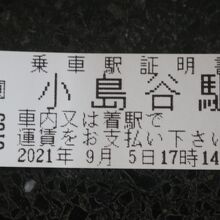 乗車駅証明書
小島谷駅
車内又は着駅で
運賃をお支払い下さい
2021年 9月 5日17時14